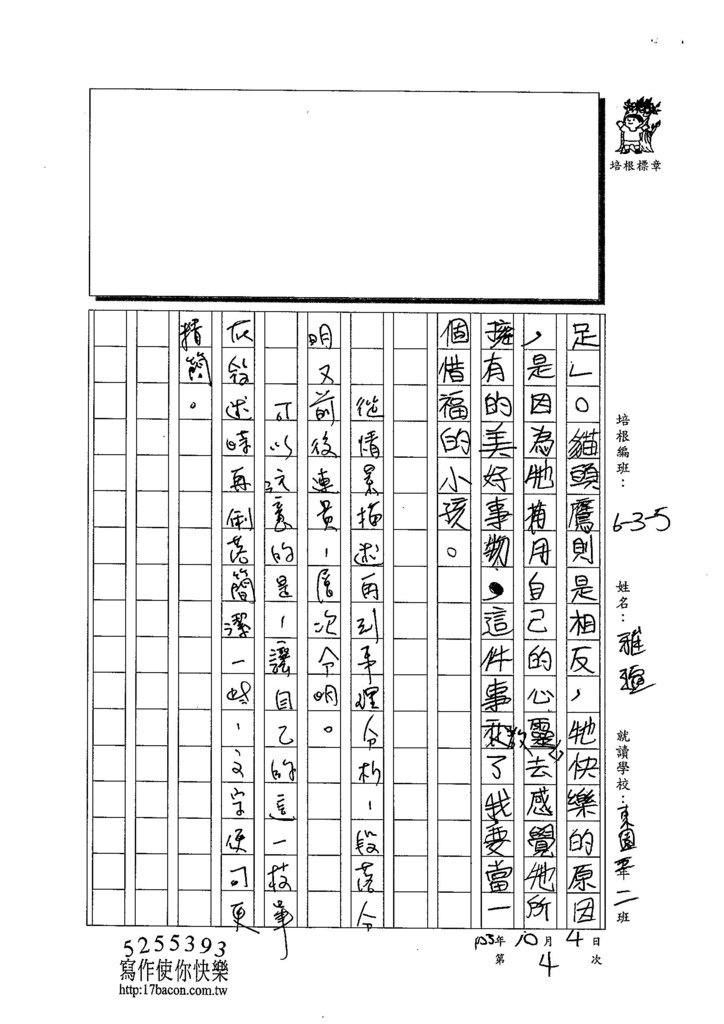 足」。貓頭鷹則是相反，牠快樂的原因
，是因為牠有用自己的心靈去感覺牠所
擁有的美好事物，這件事教了我要當一
個惜福的小孩。
從情景描述再到事理分析，段落分
明又前後連貫，層次分明。
可以注意的是，讓自己的這一枝筆
在敘述時再俐落簡潔一些，文字便可更
精簡。
培根標章
培根編班：6-3-5
姓名：雅
就讀學校：東園 二班
103年10月4日
第4次
5255393
寫作使你快樂
http:17bacon.com.tw